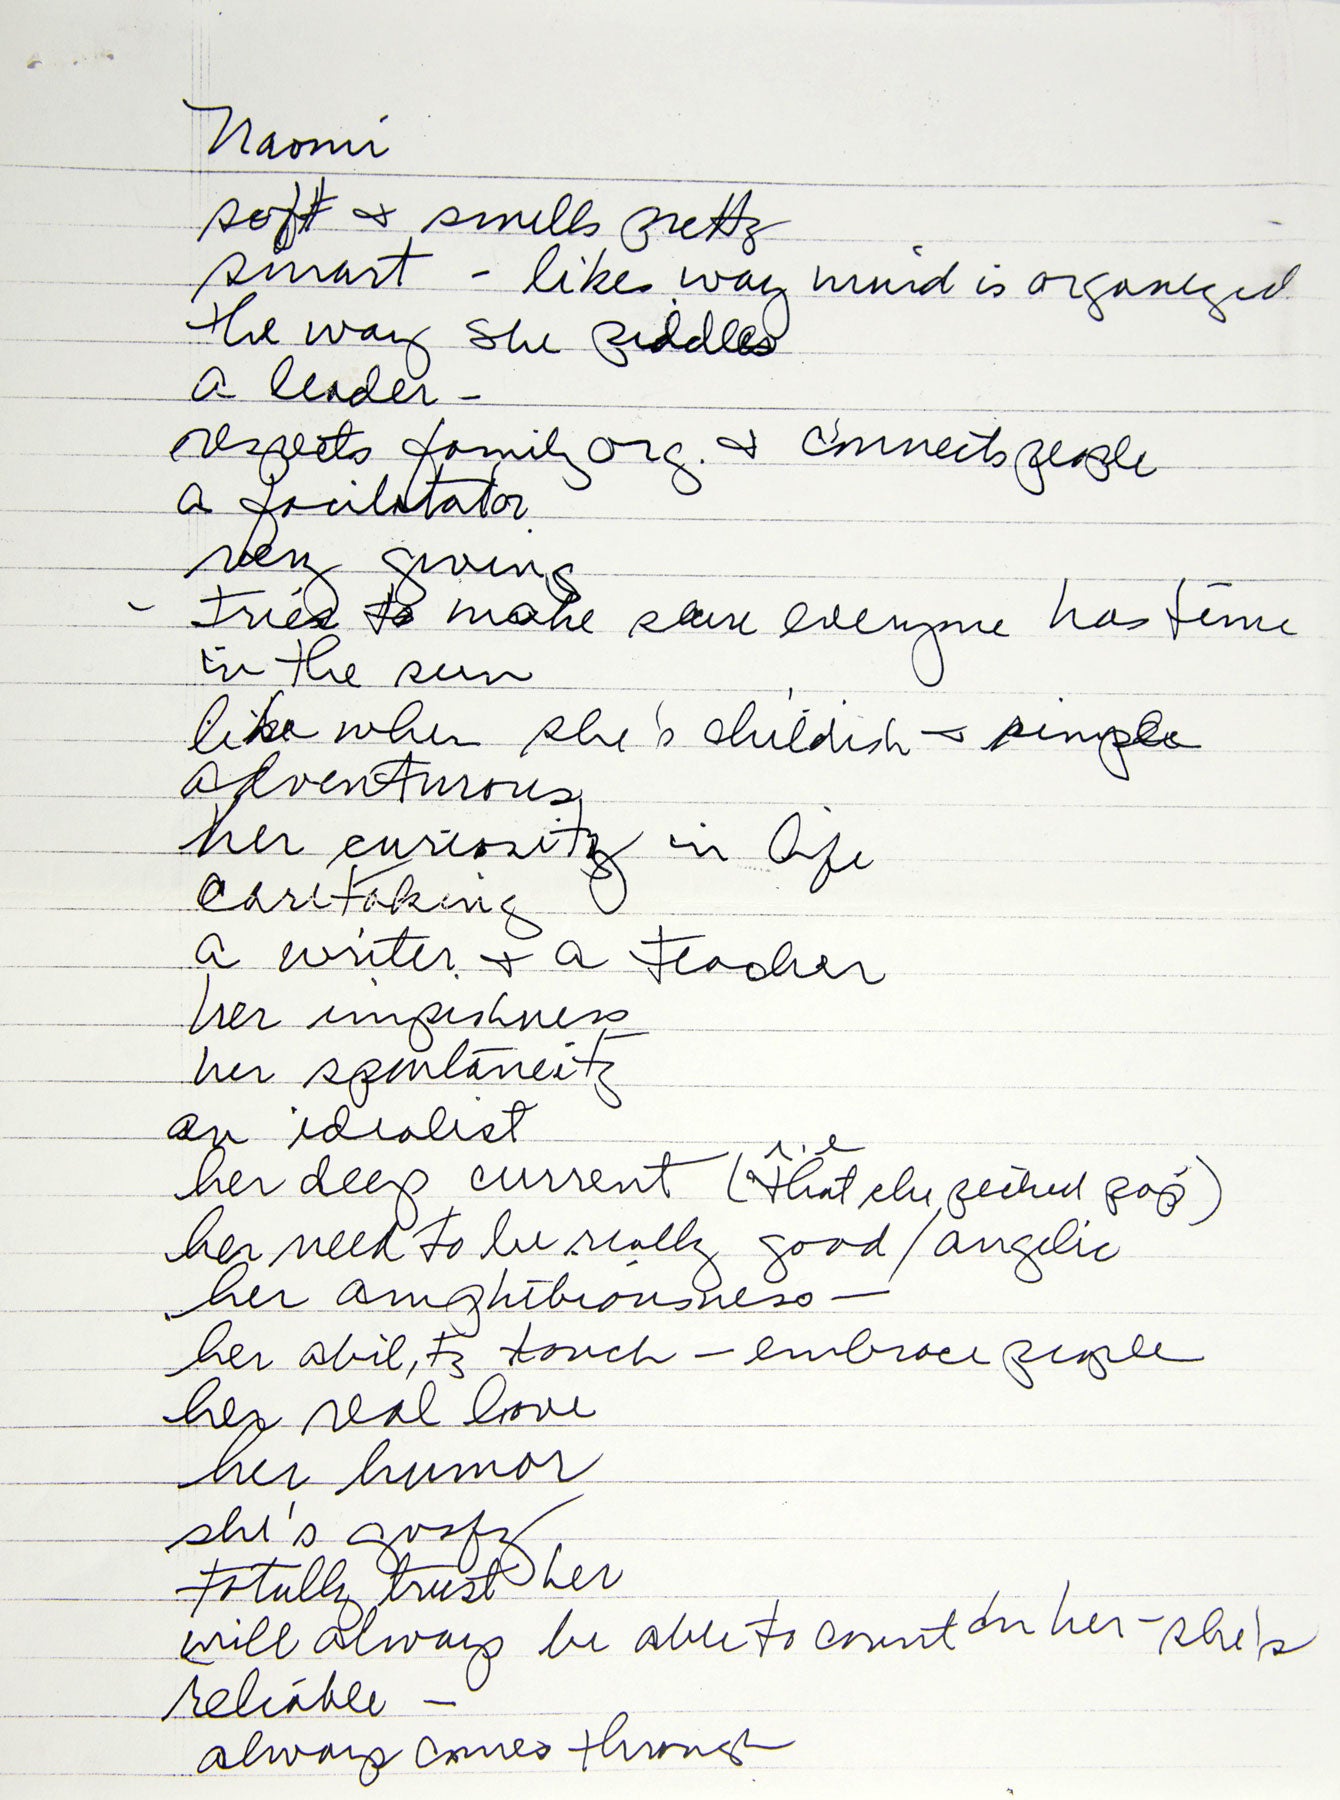 Naomi
soft & smells pretty
smart - likes way mind is organized
the way she piddles
a leader -
respects family org. & connects people
a facilitator
very giving
- tries to make sure everyone has time
in the sun
like when she's childish & simple
adventurous
her curiosity in life
caretaking
a writer & a teacher
her impishness
her spontaneity
an idealist
her deep current (i.e that she picked pop)
her need to be really good/angelic
her amphibiousness -
her ability touch - embrace people
her real love
her humor
she's goofy
totally trust her
will always be able to count on her - she's
reliable -
always comes through